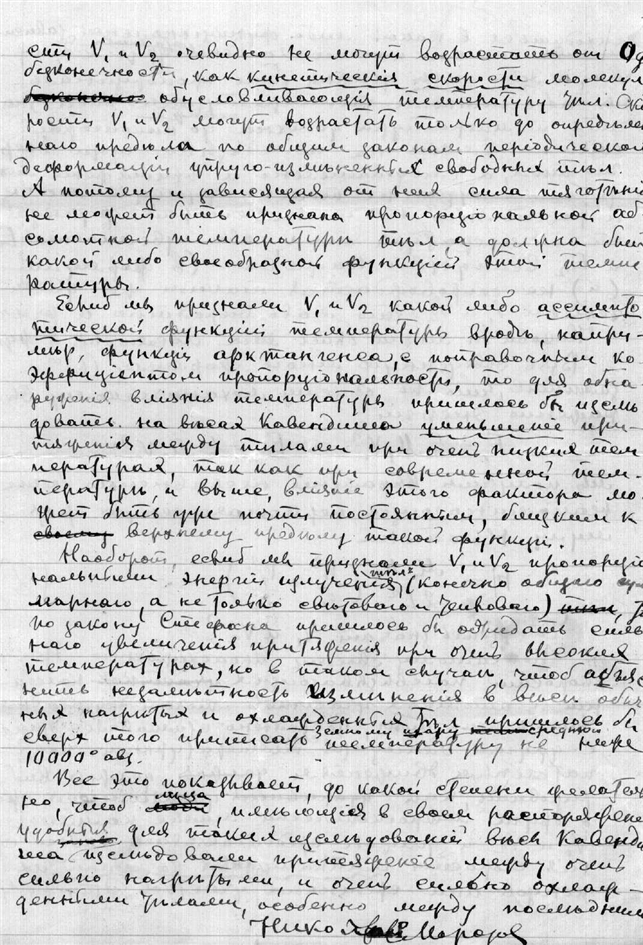 сти V₁ и V₂ очевидно не могут возрастать от 0 до
безконечности, как кинетическия скорости молекул
безконечно обусловливающия температуру тѣл. Ско
рости V₁ и V₂ могут возрастать только до опредѣлен
наго предѣла по общим законам періодической
деформаціи упруго-измѣненных свободных тѣл.
А потому и зависящая от нея сила тяготѣнія
не может быть признана пропорціональной аб
солютной температуры тѣл, а должна быть
какой либо своеобразной функціей этой темпе
ратуры.
Если б мы признали V₁ и V₂ какой либо ассимпто
тической функціей температуры вродѣ, напри-
мѣр, функціи арктангенса, с поправочным ко
эффиціентом пропорціональности, то для обна
руженія вліянія температуры пришлось бы изслѣ
довать на вѣсах Кавендиша уменьшение при-
тяженія между тѣлами при очень низких тем
пературах, так как при современной тем-
пературы, и выше, вліяніе этого фактора мо
жет быть уже почти постоянным, близким к
своему верхнему предѣлу такой функціи.
Наоборот, если б мы признали V₁ и V₂ пропорціо
нальными энергіи излученія тѣл (конечно общаго сум
марнаго, а не только свѣтоваго и тепловаго) тѣл, то
по закону Стефана пришлось бы ожидать силь
наго увеличенія притяженія при очень высоких
температурах, но в таком случаѣ, чтоб объяс
нить незамѣтность измѣненія в вѣсѣ обыч
ных нагрѣтых и охлажденных тѣл пришлось бы
сверх того приписать земному шару среднюю температуру не ниже
10000° абс.
Все это показывает, до какой степени желатель
но, чтоб лица, имѣющія в своем распоряжении
удобныя для таких изслѣдованій вѣсы Кавенди
ша изслѣдовали притяжение между очень
сильно нагрѣтыми, и очень сильно охлаж-
денными тѣлами, особенно между послѣдними.
Николай Морозов